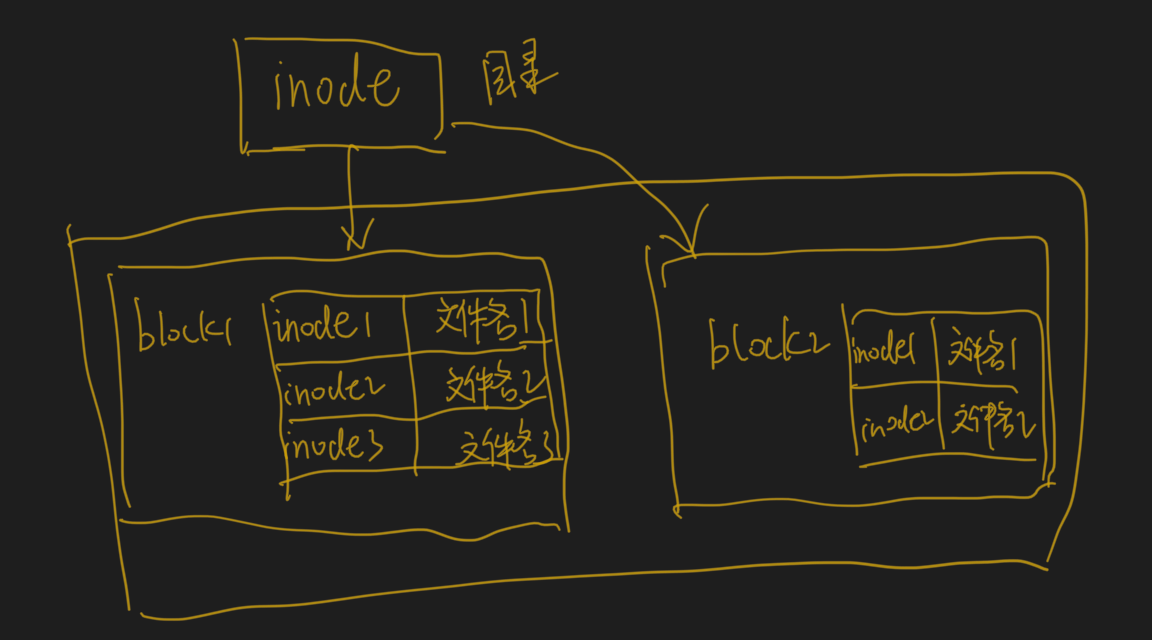 inode 目录
block1
inode1 文件名1
inode2 文件名2
inode3 文件名3
block2
inode1 文件名1
inode2 文件名2